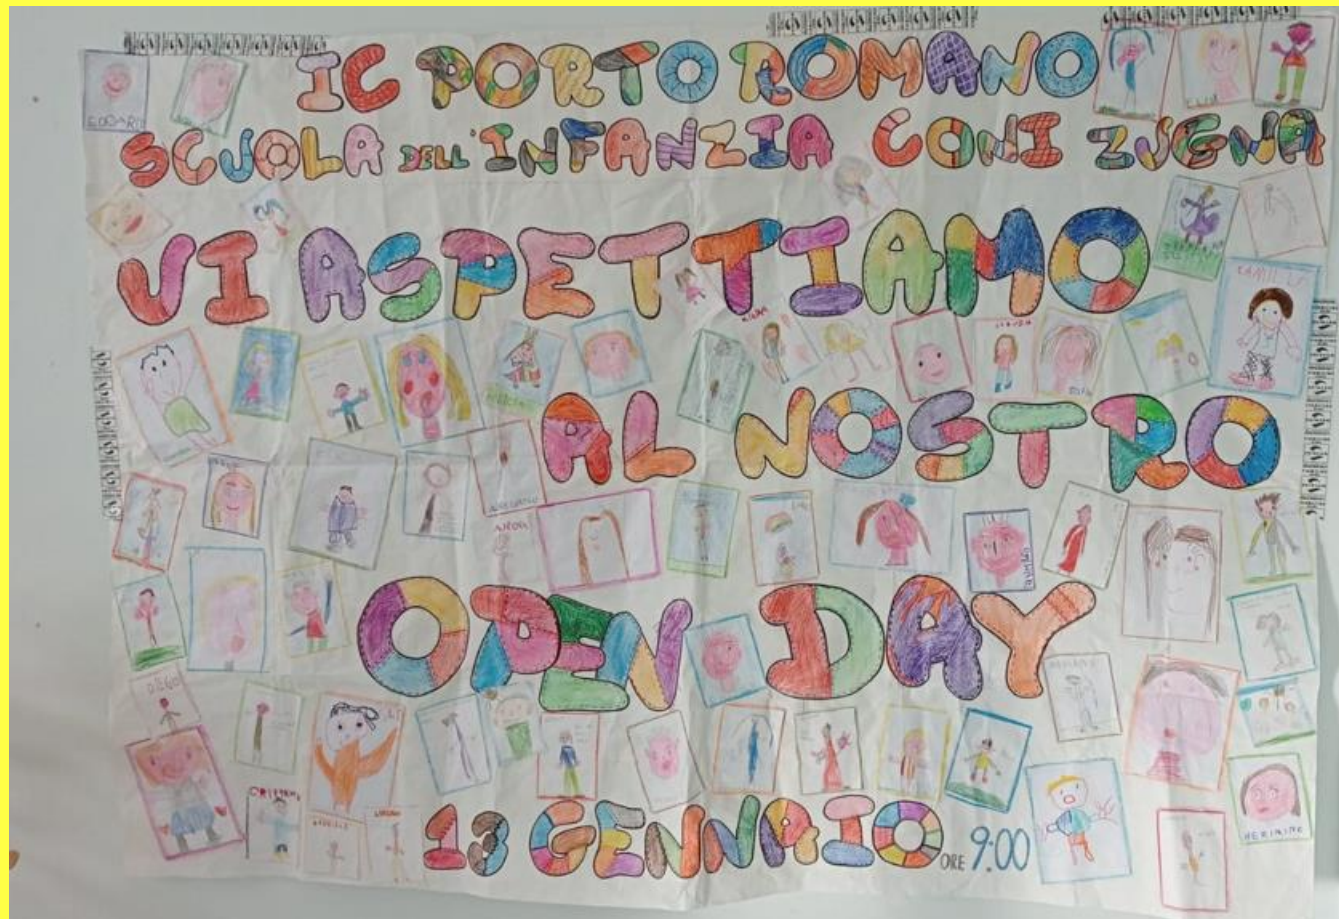 IC PORTO ROMANO
SCUOLA DELL'INFANZIA CONI ZUGNA
VI ASPETTIAMO
AL NOSTRO
OPEN DAY
DIEGO
13 GENNAIO ORE 9:00